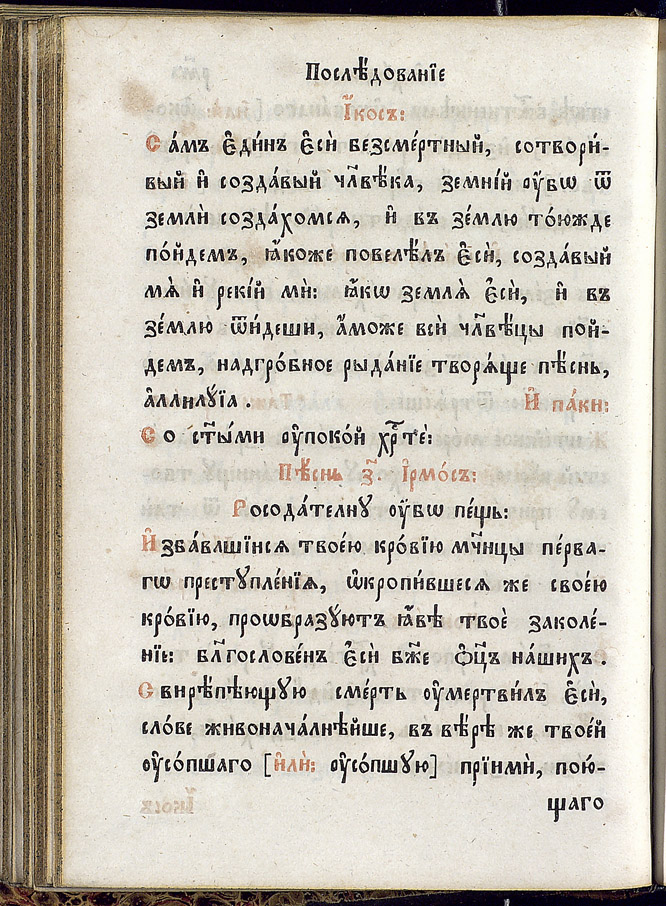 Послѣ́дованїе
І҆́косъ:
Са́мъ є҆ди́нъ є҆сѝ безсме́ртный, сотвори́-
вый и҆ созда́вый чл҃вѣ́ка, земні́й ᲂу҆́бѡ ѿ
землѝ созда́хомся, и҆ въ зе́млю то́южде
по́йдемъ, ꙗ҆́коже повелѣ́лъ є҆сѝ, созда́вый
мѧ̀ и҆ реки́й мѝ: ꙗ҆́кѡ землѧ̀ є҆сѝ, и҆ въ
зе́млю ѿи́деши, а҆́може всѝ чл҃вѣ́цы пой-
демъ, надгро́бное рыда́нїе творѧ́ще пѣ́снь,
а҆ллилꙋ́їа. И҆ па́ки:
Со ст҃ы́ми ᲂу҆поко́й хрⷭ҇тѐ:
Пѣ́снь з҃. І҆рмо́съ:
Росода́телнꙋ ᲂу҆́бѡ пе́щь:
И҆зба́вльшїися твое́ю кро́вїю мч҃нцы пе́рва-
гѡ престꙋпле́нїѧ, ѡ҆кропи́вшеся же свое́ю
кро́вїю, проѡбразꙋ́ютъ ꙗ҆́вѣ твоѐ заколе́-
нїе: бл҃гослове́нъ є҆сѝ бж҃е ѻ҆ц҃ъ на́шихъ.
Свирѣ́пѣющꙋю сме́рть ᲂу҆мертви́лъ є҆сѝ,
сло́ве живонача́лнѣйше, въ вѣ́рѣ же твое́й
ᲂу҆со́пшаго [и҆лѝ: ᲂу҆со́пшꙋю] прїимѝ, пою́-
щаго